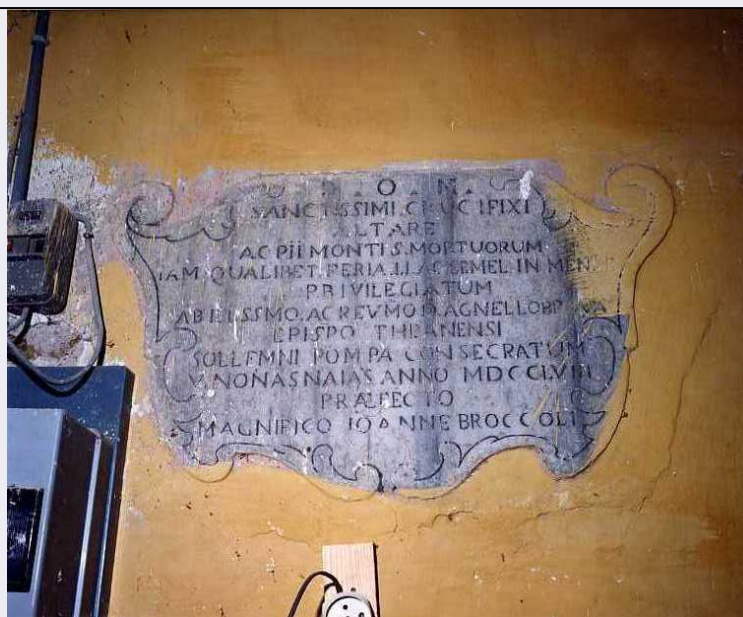 D. O. M.
SANCTISSIMI CRUCIFIXI
ALTARE
AC PII MONTIS MORTUORUM
IAM QUALIBET FERIA II AC SEMEL IN
PRIVILEGIATUM
AB ACREVMO D AGNELLO
EPISPO THEANENSI
SOLLEMNI POMPA CONSECRATUM
V NONAS NAIAS ANNO
PRÆFECTO
MAGNIFICO IOANNE BROCCOLI